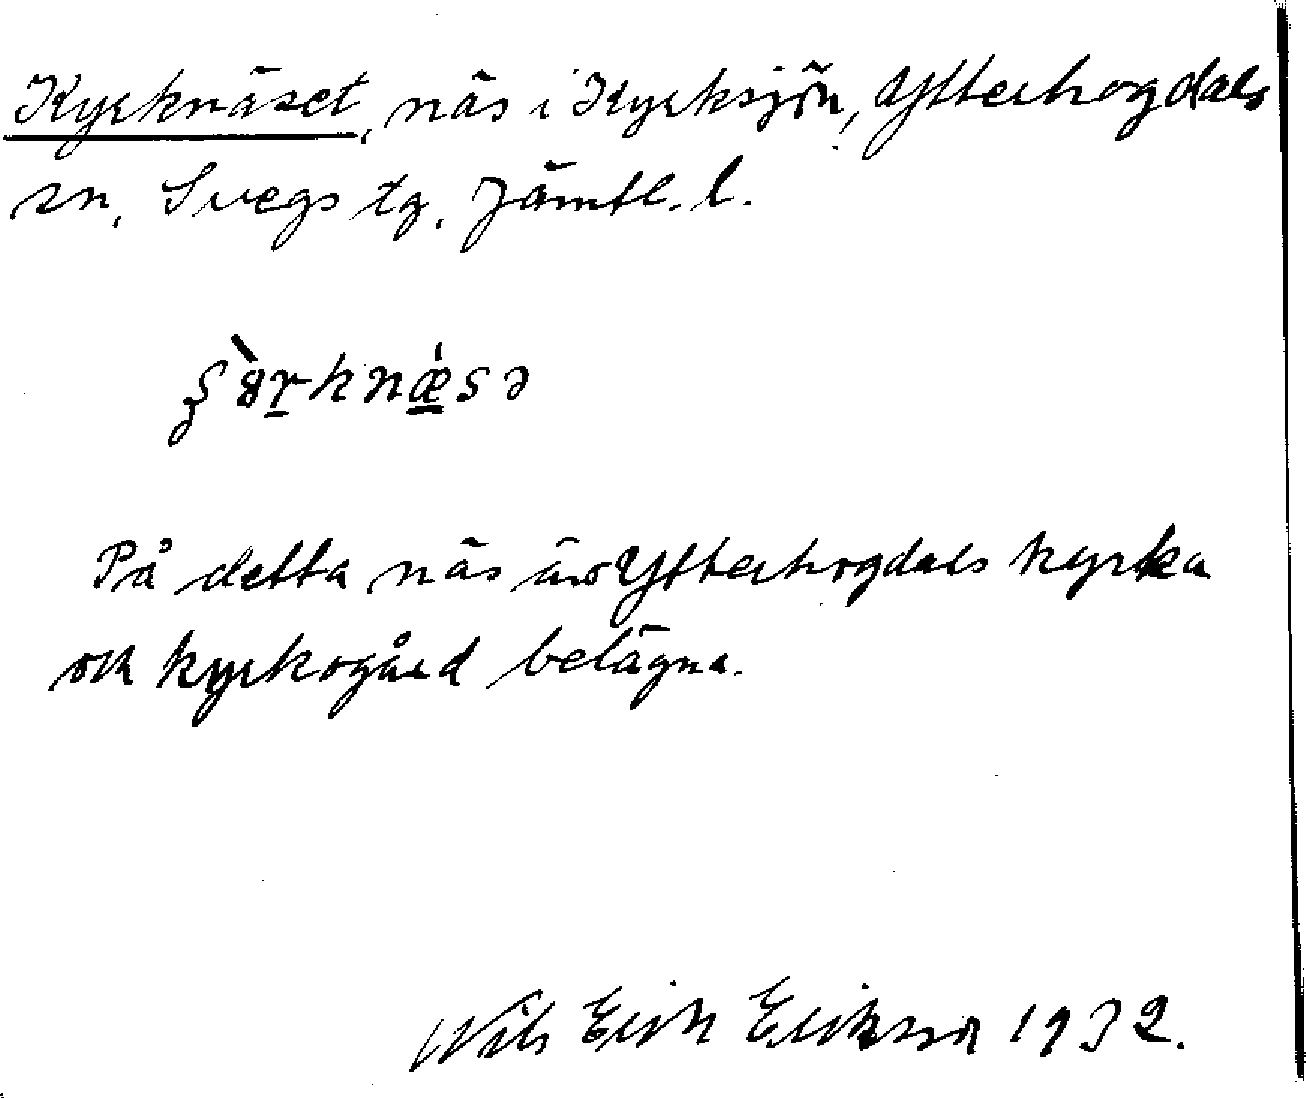 Kyrknäset, näs i Kyrksjön, Ytterhogdals
sn, Svegs tg. Jämtl. l.
På detta näs äro Ytterhogdals kyrka
och kyrkogård belägna.
Nils Erik Erikson 1932.